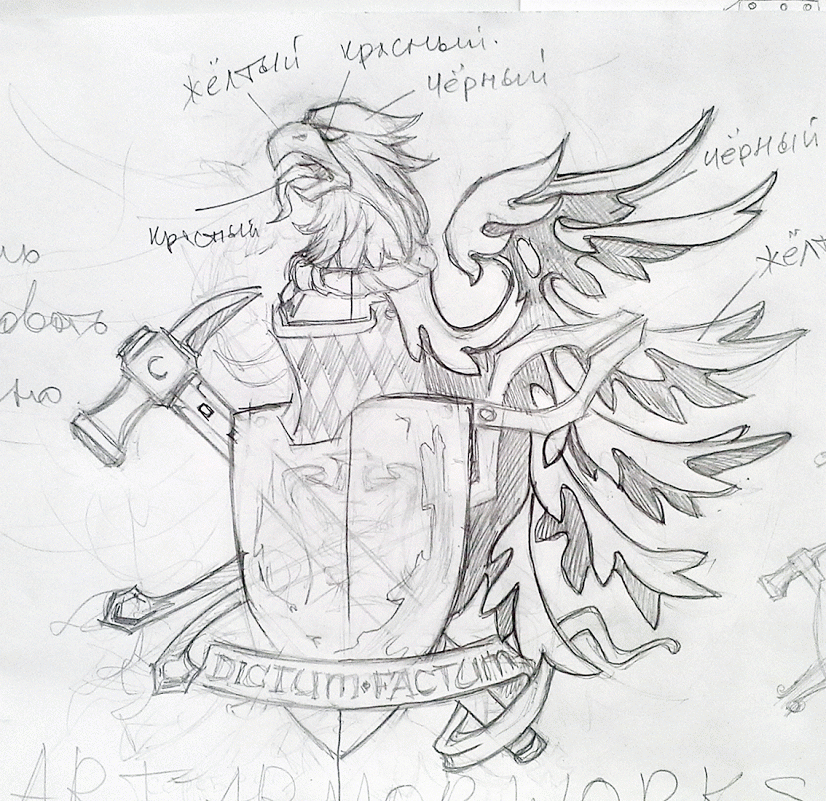 жёлтый красный.
чёрный
чёрный
красный
жёлт
овать
но
C
DICTUM·FACTUM
ART ARMOR WORKS